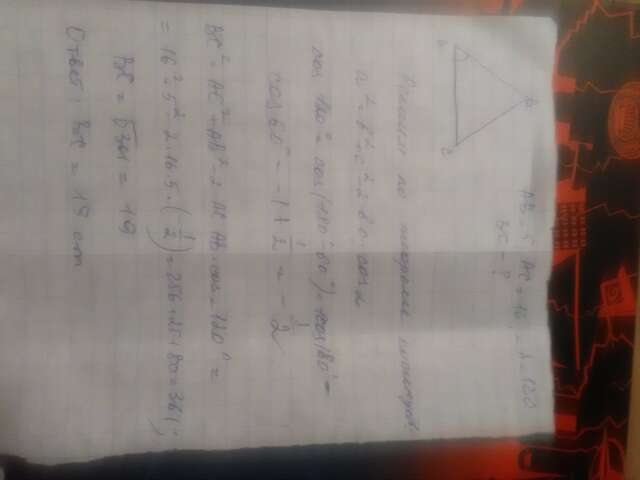 AB = 5 AC = 16 = A = 120
BC - ?
A
B
C
по теореме
a² = b² + c² - 2 bc · cos α
cos 120° = cos (180° - 60°) = cos 180° -
cos 60° = -1 + 1/2 = - 1/2
BC² = AC² + AB² - 2 AC AB · cos = 120° =
= 16² + 5² - 2 · 16 · 5 · (- 1/2) = 256 + 25 + 80 = 361;
BC = √361 = 19
Ответ: BC = 19 cm